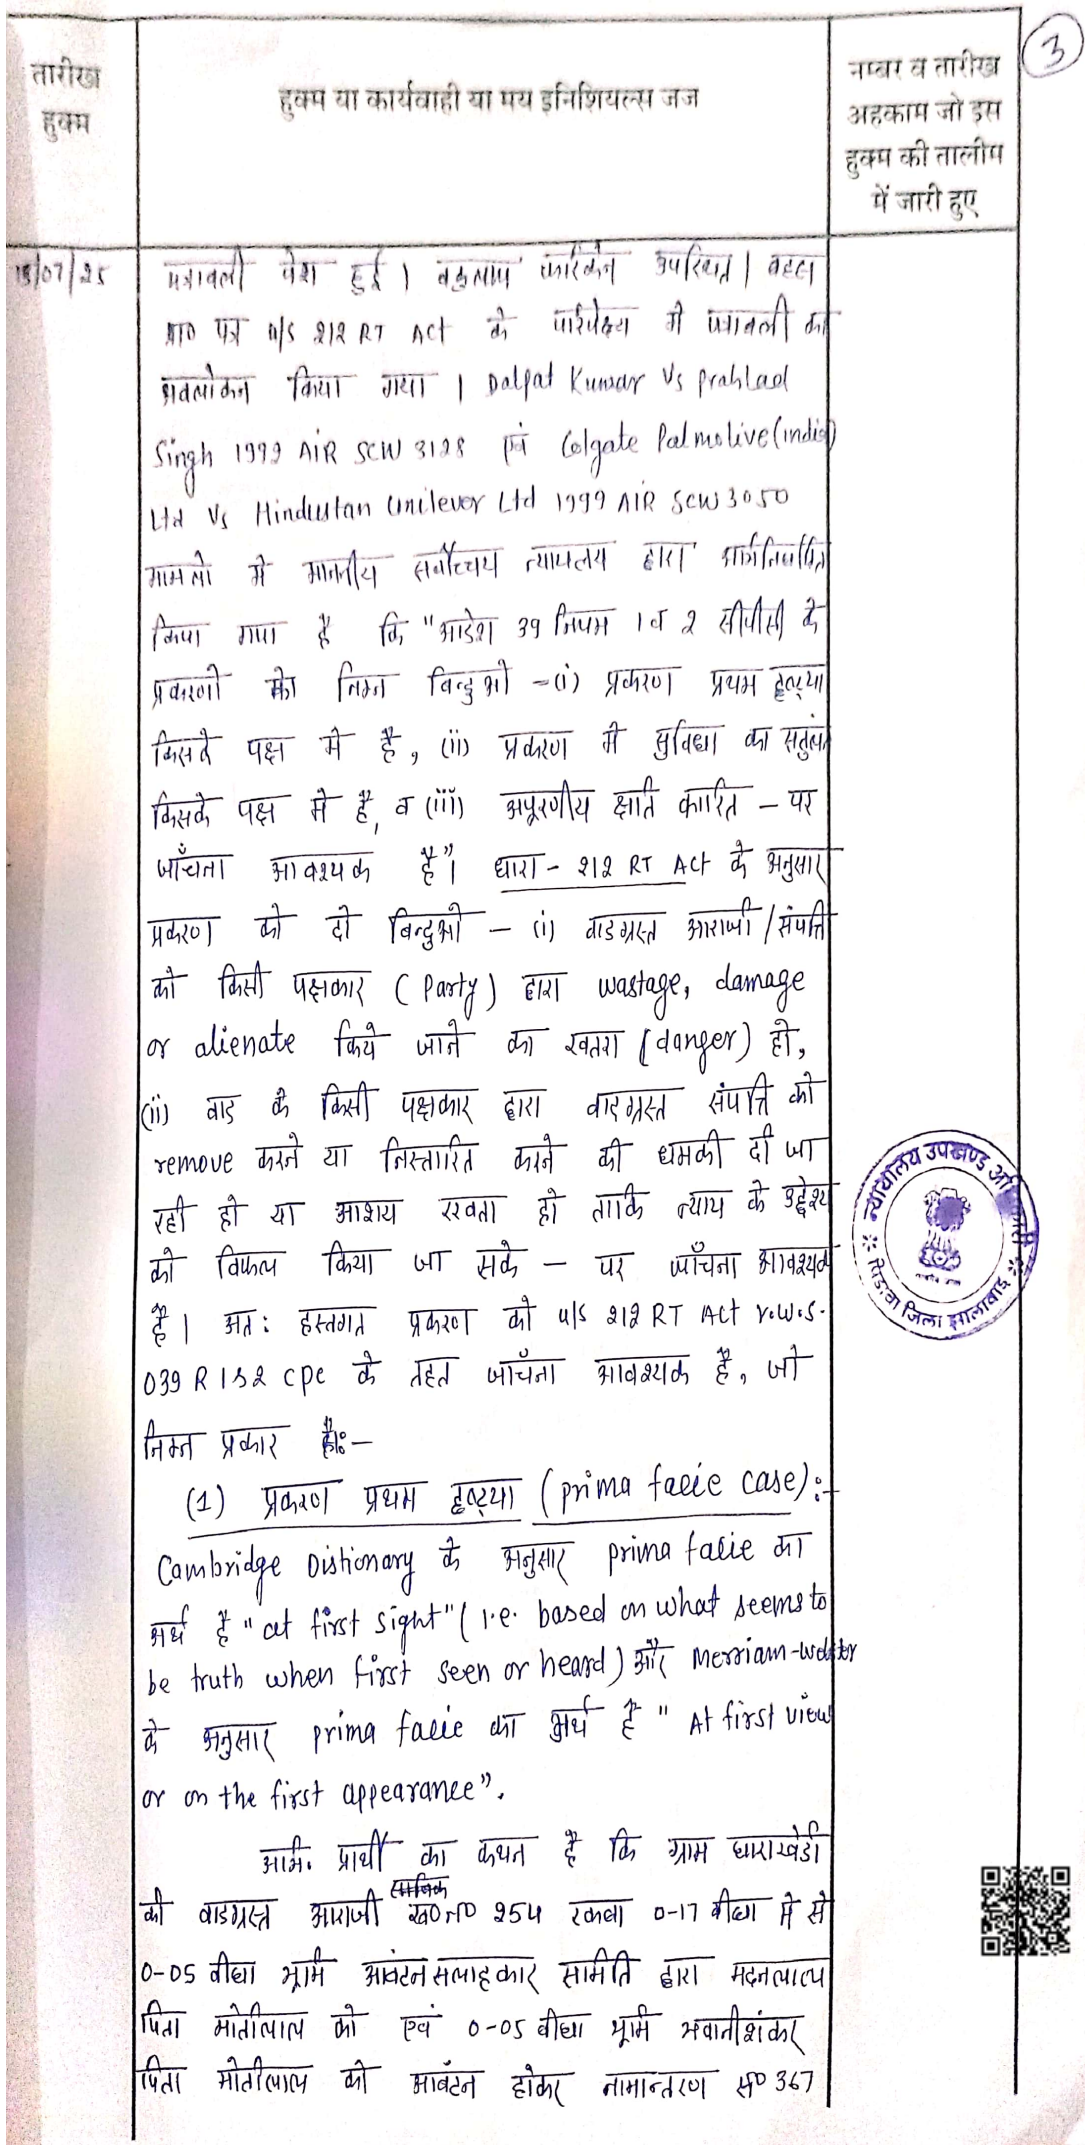 3
तारीख
हुक्म
हुक्म या कार्यवाही या मय इनिशियल्स जज
नम्बर व तारीख
अहकाम जो इस
हुक्म की तालीम
में जारी हुए
15/07/25
पत्रावली पेश हुई । वकुलाय फरिकेन उपस्थित । बहस
प्रा० पत्र u/s 212 RT Act के परिपेक्ष्य में पत्रावली का
अवलोकन किया गया । Dalpat Kumar Vs prahlad
Singh 1999 AIR SCW 3128 एवं Colgate Palmolive (india)
Ltd Vs Hindustan Unilever Ltd 1999 AIR SCW 3050
मामलो मे माननीय सर्वोच्चय न्यायालय द्वारा
किया गया है कि "आदेश 39 नियम 1 व 2 सीपीसी के
प्रकरणो को निम्न बिन्दुओ - (i) प्रकरण प्रथम दृष्ट्या
किसके पक्ष मे है, (ii) प्रकरण मे सुविधा का सतुंलन
किसके पक्ष मे है, व (iii) अपूरणीय क्षति कारित - पर
जाँचना आवश्यक है"। धारा - 212 RT Act के अनुसार
प्रकरण को दो बिन्दुओ - (i) वादग्रस्त आराजी/संपत्ति
को किसी पक्षकार (Party) द्वारा wastage, damage
or alienate किये जाने का खतरा (danger) हो,
(ii) वाद के किसी पक्षकार द्वारा वादग्रस्त संपत्ति को
remove करने या निस्तारित करने की धमकी दी जा
रही हो या आशय रखता हो ताकि न्याय के उद्देश्य
को विफल किया जा सके - पर जाँचना आवश्यक
है । अत: हस्तगत प्रकरण को u/s 212 RT Act r.w.s.
O39 R 1&2 cpc के तहत जाँचना आवश्यक है, जो
निम्न प्रकार है:-
(1) प्रकरण प्रथम दृष्ट्या (prima facie case):-
Cambridge Distionary के अनुसार prima facie का
अर्थ है "at first sight" (i.e. based on what seems to
be truth when first seen or heard) और Merriam-webster
के अनुसार prima facie का अर्थ है "At first view
or on the first appearance".
अभि. प्रार्थी का कथन है कि ग्राम धाराखेडी
साबिक
की वादग्रस्त आराजी ख० न० 254 रकबा 0-17 बीघा मे से
0-05 बीघा भूमि आवंटन सलाहकार समिति द्वारा मदनलाल
पिता मोतीलाल को एवं 0-05 बीघा भूमि भवानीशंकर
पिता मोतीलाल को आवंटन होकर नामान्तरण स० 367
न्यायालय उपखण्ड अधिकारी
पिड़ावा जिला झालावाड़